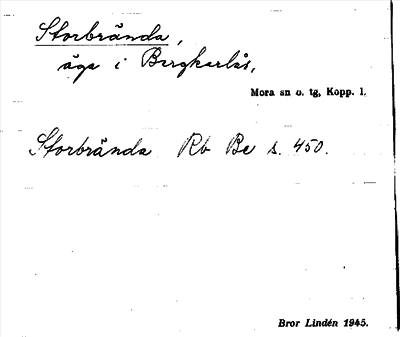 Storbrända,
äga i Bergkarlås,
Mora sn o. tg, Kopp. l.
Storbrända Rb Be s. 450.
Bror Lindén 1945.